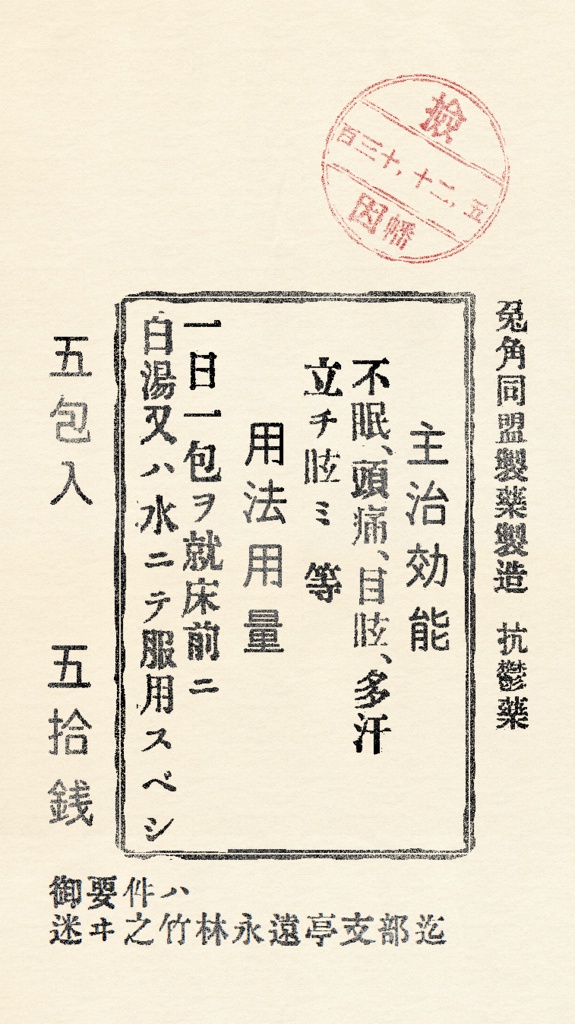 検
百三十,十二,五
因幡
兎角同盟製薬製造 抗鬱薬
主治効能
不眠、頭痛、目眩、多汗
立チ眩ミ 等
用法用量
一日一包ヲ就床前ニ
白湯又ハ水ニテ服用スベシ
五包入 五拾銭
御要件ハ
迷ヰ之竹林永遠亭支部迄